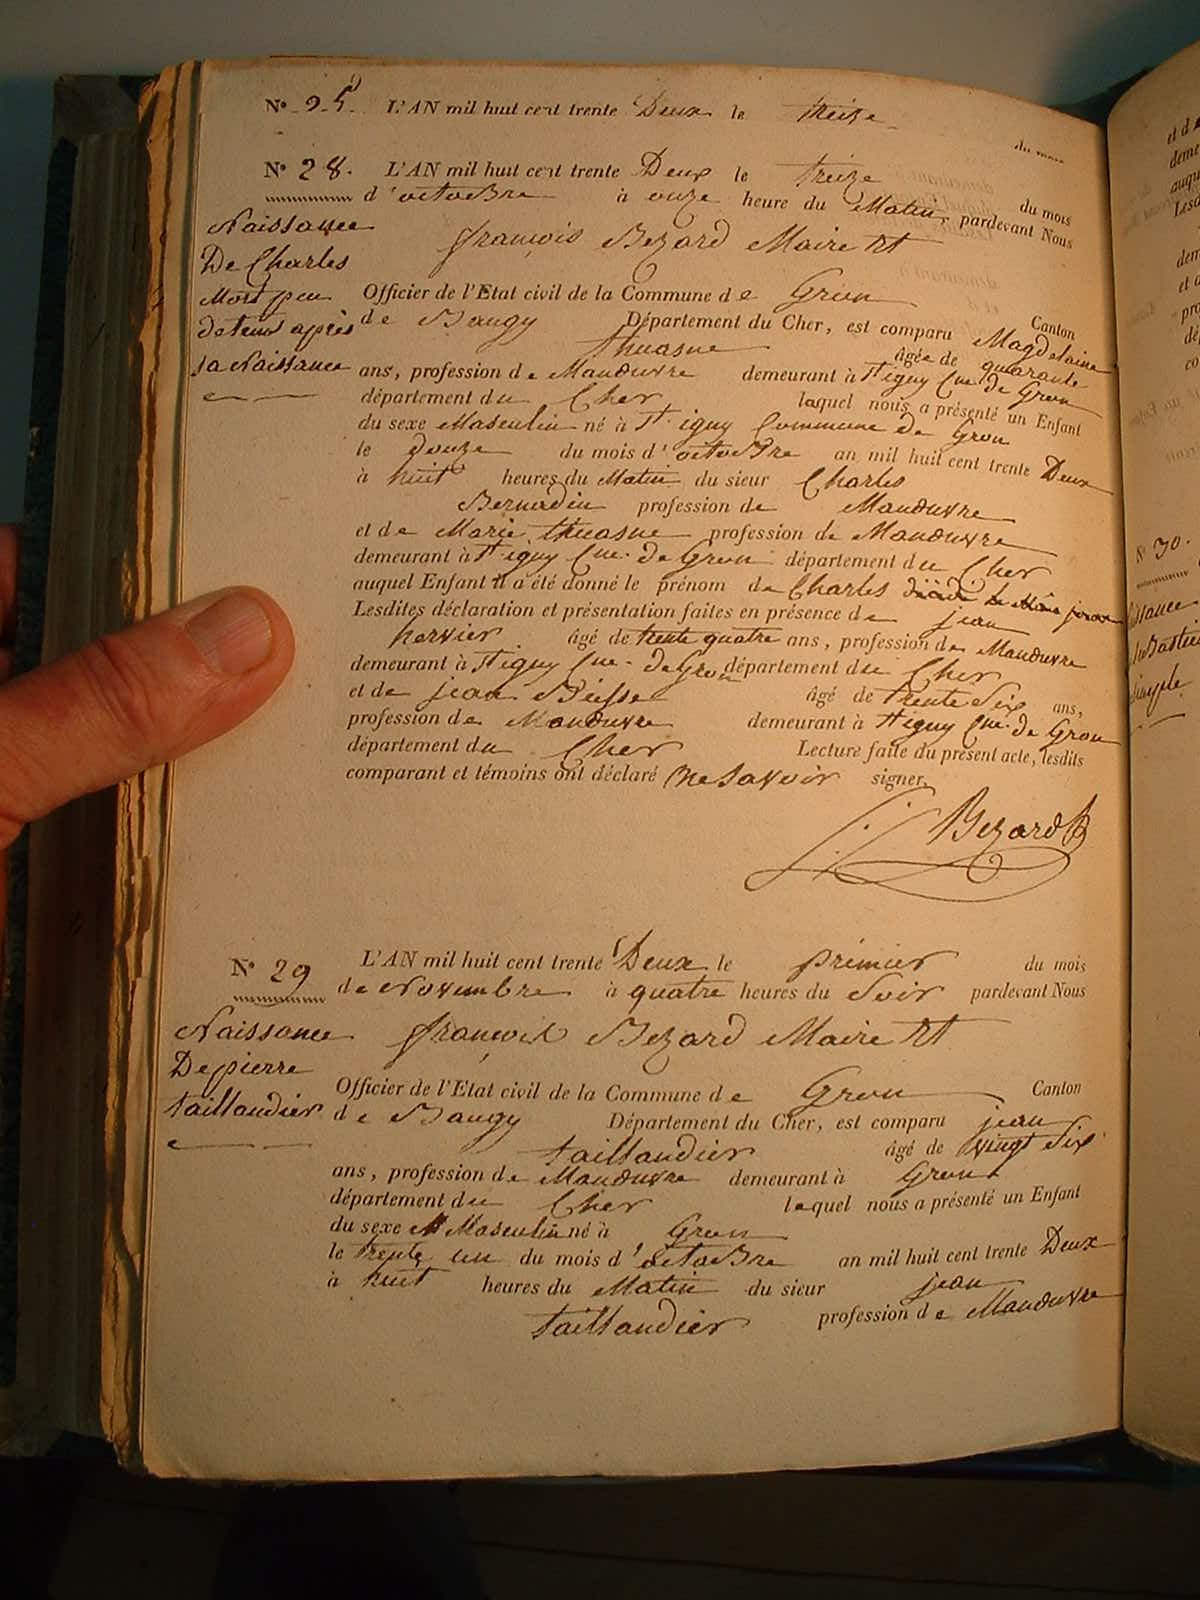 N° 25. L'AN mil huit cent trente Deux le treize
du mois
N° 28. L'AN mil huit cent trente Deux le treize du mois
d'octoBre à onze heure du Matin pardevant Nous
françois Bezard Maire et
Officier de l'Etat civil de la Commune de Gron Canton
de Baugy Département du Cher, est comparu Magdelaine
thuasne âgée de quarante
ans, profession de Manœuvre demeurant à St igny Cne de Gron
département du Cher laquel nous a présenté un Enfant
du sexe Masculin né à St igny Commune de Gron
le douze du mois d'octoBre an mil huit cent trente Deux
à huit heures du Matin du sieur Charles
Bernardin profession de Manœuvre
et de Marie thuasne profession de Manœuvre
demeurant à St igny Cne de Gron département du Cher
auquel Enfant il a été donné le prénom de Charles décédé le même jour
Lesdites déclaration et présentation faites en présence de jean
hervier âgé de trente quatre ans, profession de Manœuvre
demeurant à St igny Cne de Gron département du Cher
et de jean âgé de trente Six ans,
profession de Manœuvre demeurant à St igny Cne de Gron
département du Cher Lecture faite du présent acte, lesdits
comparant et témoins ont déclaré Ne Savoir signer.
Bezard
Naissance
De Charles
Mort peu
de tems après
sa Naissance
N° 29 L'AN mil huit cent trente Deux le prémier du mois
de Novembre à quatre heures du Soir pardevant Nous
françois Bezard Maire et
Officier de l'Etat civil de la Commune de Gron Canton
de Baugy Département du Cher, est comparu jean
taillandier âgé de vingt Six
ans, profession de Manœuvre demeurant à Gron
département du Cher lequel nous a présenté un Enfant
du sexe Masculin né à Gron
le trente un du mois d'octoBre an mil huit cent trente Deux
à huit heures du Matin du sieur jean
taillandier profession de Manœuvre
Naissance
De pierre
taillandier
N° 30.